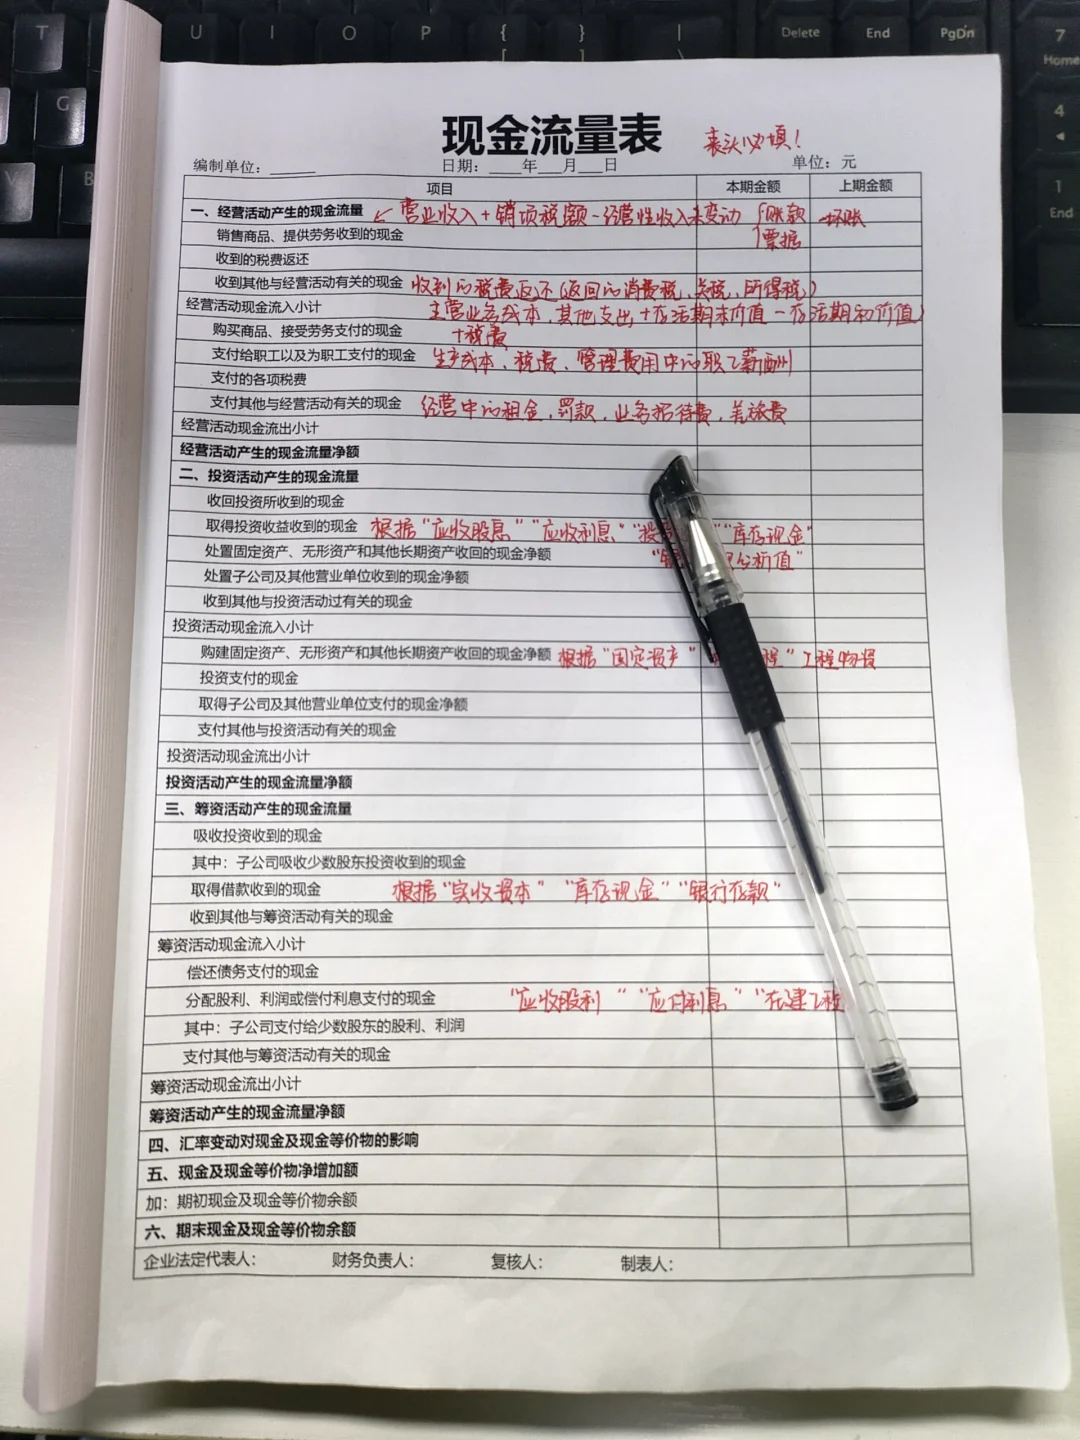 T U I O P { } | Delete End PgDn 7
[ ] Home
G 4
V B 1
End
现金流量表 表头必填!
编制单位: 日期: 年 月 日 单位: 元
项目 本期金额 上期金额
一、经营活动产生的现金流量 营业收入+销项税额-经营性收入未变动 账款 -坏账
销售商品、提供劳务收到的现金 票据
收到的税费返还
收到其他与经营活动有关的现金 收到的税费返还(返回的消费税、关税、所得税)
经营活动现金流入小计 主营业务成本,其他支出+存活期末价值-存活期初价值)
购买商品、接受劳务支付的现金 +税费
支付给职工以及为职工支付的现金 生产成本、税费、管理费用中的职工薪酬
支付的各项税费
支付其他与经营活动有关的现金 经营中的租金,罚款,业务招待费,差旅费
经营活动现金流出小计
经营活动产生的现金流量净额
二、投资活动产生的现金流量
收回投资所收到的现金
取得投资收益收到的现金 根据“应收股息”“应收利息”“投 ”“库存现金”
处置固定资产、无形资产和其他长期资产收回的现金净额 “银 价值”
处置子公司及其他营业单位收到的现金净额
收到其他与投资活动过有关的现金
投资活动现金流入小计
购建固定资产、无形资产和其他长期资产收回的现金净额 根据“固定资产” 程”工程物资
投资支付的现金
取得子公司及其他营业单位支付的现金净额
支付其他与投资活动有关的现金
投资活动现金流出小计
投资活动产生的现金流量净额
三、筹资活动产生的现金流量
吸收投资收到的现金
其中: 子公司吸收少数股东投资收到的现金
取得借款收到的现金 根据“实收资本”“库存现金”“银行存款”
收到其他与筹资活动有关的现金
筹资活动现金流入小计
偿还债务支付的现金
分配股利、利润或偿付利息支付的现金 “应收股利”“应付利息”“在建工程
其中: 子公司支付给少数股东的股利、利润
支付其他与筹资活动有关的现金
筹资活动现金流出小计
筹资活动产生的现金流量净额
四、汇率变动对现金及现金等价物的影响
五、现金及现金等价物净增加额
加: 期初现金及现金等价物余额
六、期末现金及现金等价物余额
企业法定代表人: 财务负责人: 复核人: 制表人: